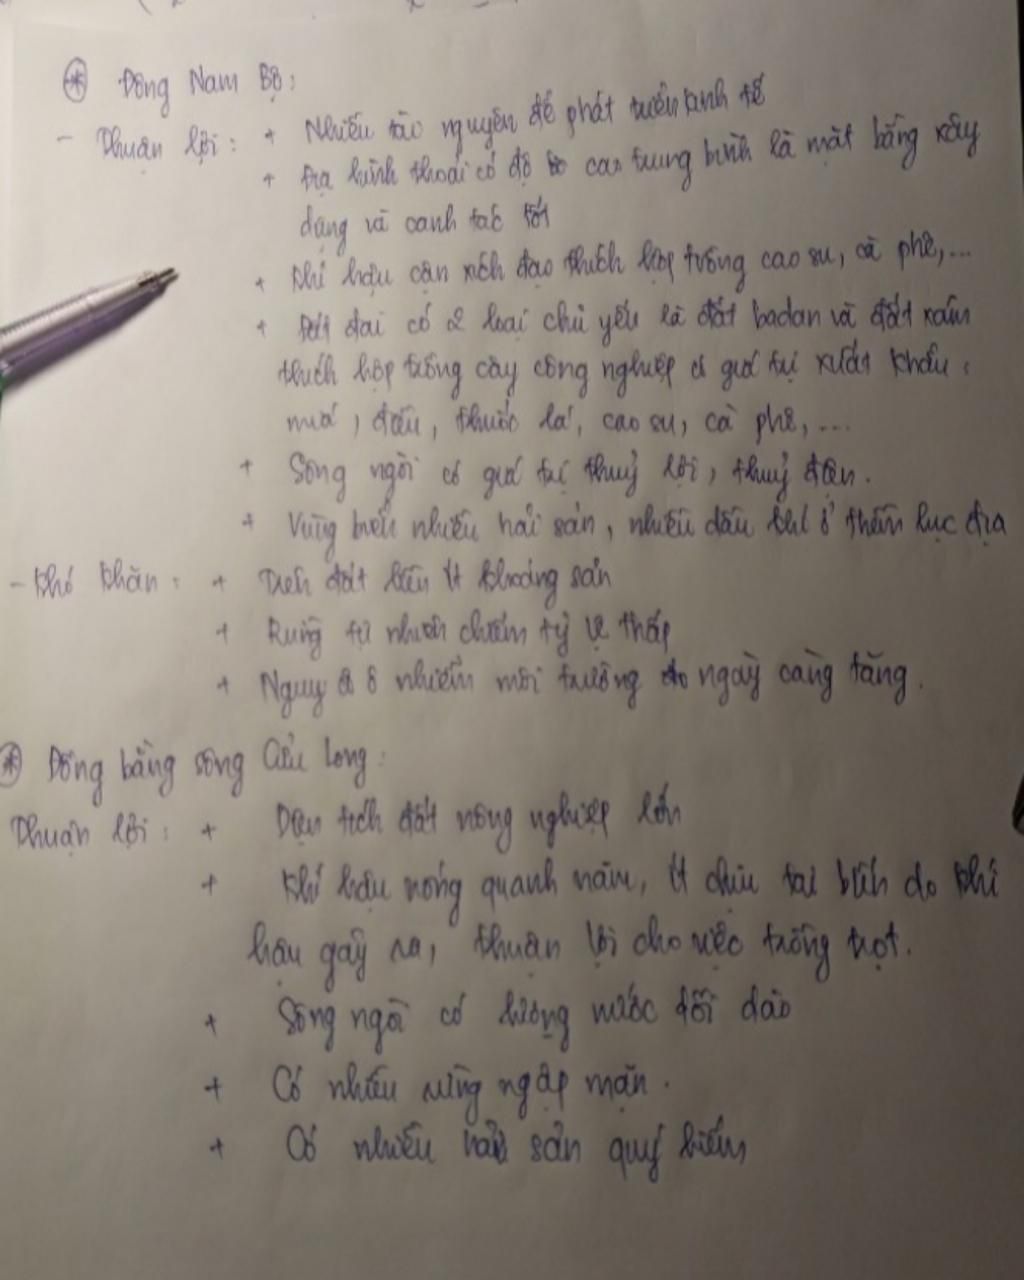 * Đông Nam Bộ:
- Thuận lợi: + Nhiều tài nguyên để phát triển kinh tế
+ Địa hình thoải có độ cao trung bình là mặt bằng xây
dựng và canh tác tốt
+ Khí hậu cận xích đạo thích hợp trồng cao su, cà phê,...
+ Đất đai có 2 loại chủ yếu là đất badan và đất xám
thích hợp trồng cây công nghiệp có giá trị xuất khẩu:
mía, đậu, thuốc lá, cao su, cà phê,...
+ Sông ngòi có giá trị thuỷ lợi, thuỷ điện.
+ Vùng biển nhiều hải sản, nhiều dầu khí ở thềm lục địa
- Khó khăn: + Trên đất liền ít khoáng sản
+ Rừng tự nhiên chiếm tỷ lệ thấp
+ Nguy cơ ô nhiễm môi trường do ngày càng tăng.
* Đồng bằng sông Cửu Long:
Thuận lợi: + Diện tích đất nông nghiệp lớn
+ Khí hậu nóng quanh năm, ít chịu tai biến do khí
hậu gây ra, thuận lợi cho việc trồng trọt.
+ Sông ngòi có lượng nước dồi dào
+ Có nhiều rừng ngập mặn.
+ Có nhiều hải sản quý hiếm